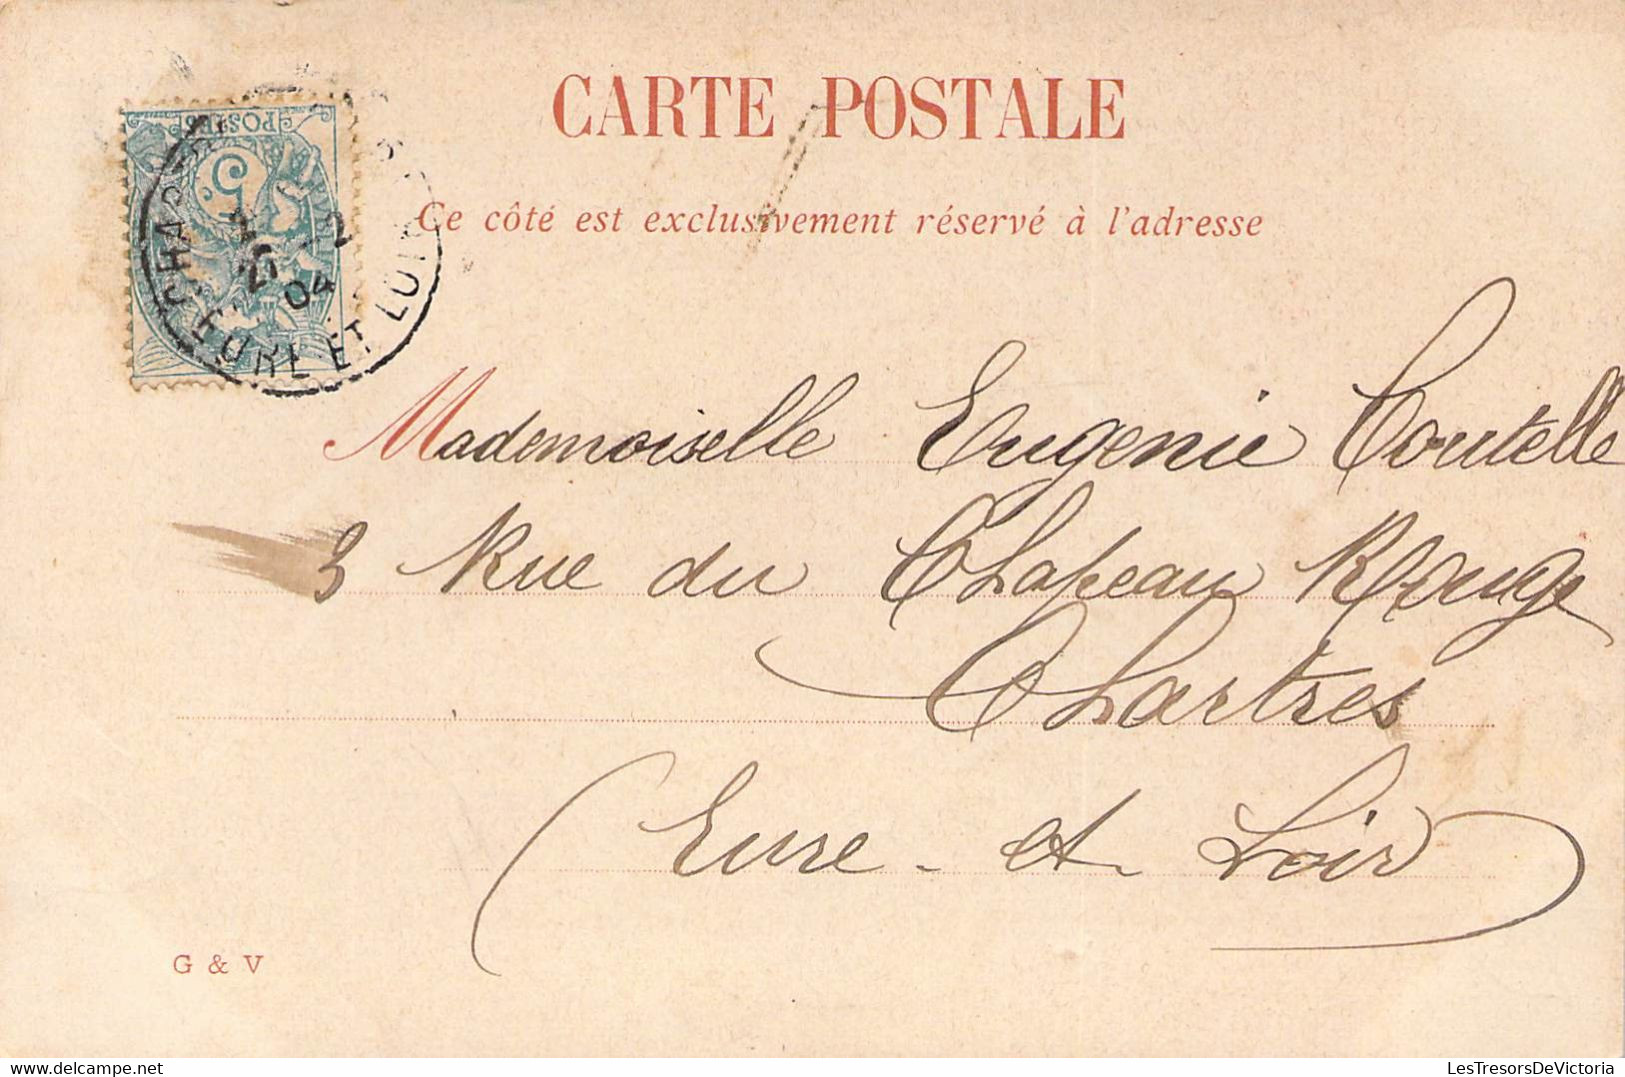 CARTE POSTALE
Ce côté est exclusivement réservé à l'adresse
POSTES
5
21 - 2
04
EURE ET LOIR
Mademoiselle Eugenie Coutelle
3 Rue du Chapeau Rouge
Chartres
Eure - et - Loir
G & V
LesTresorsDeVictoria